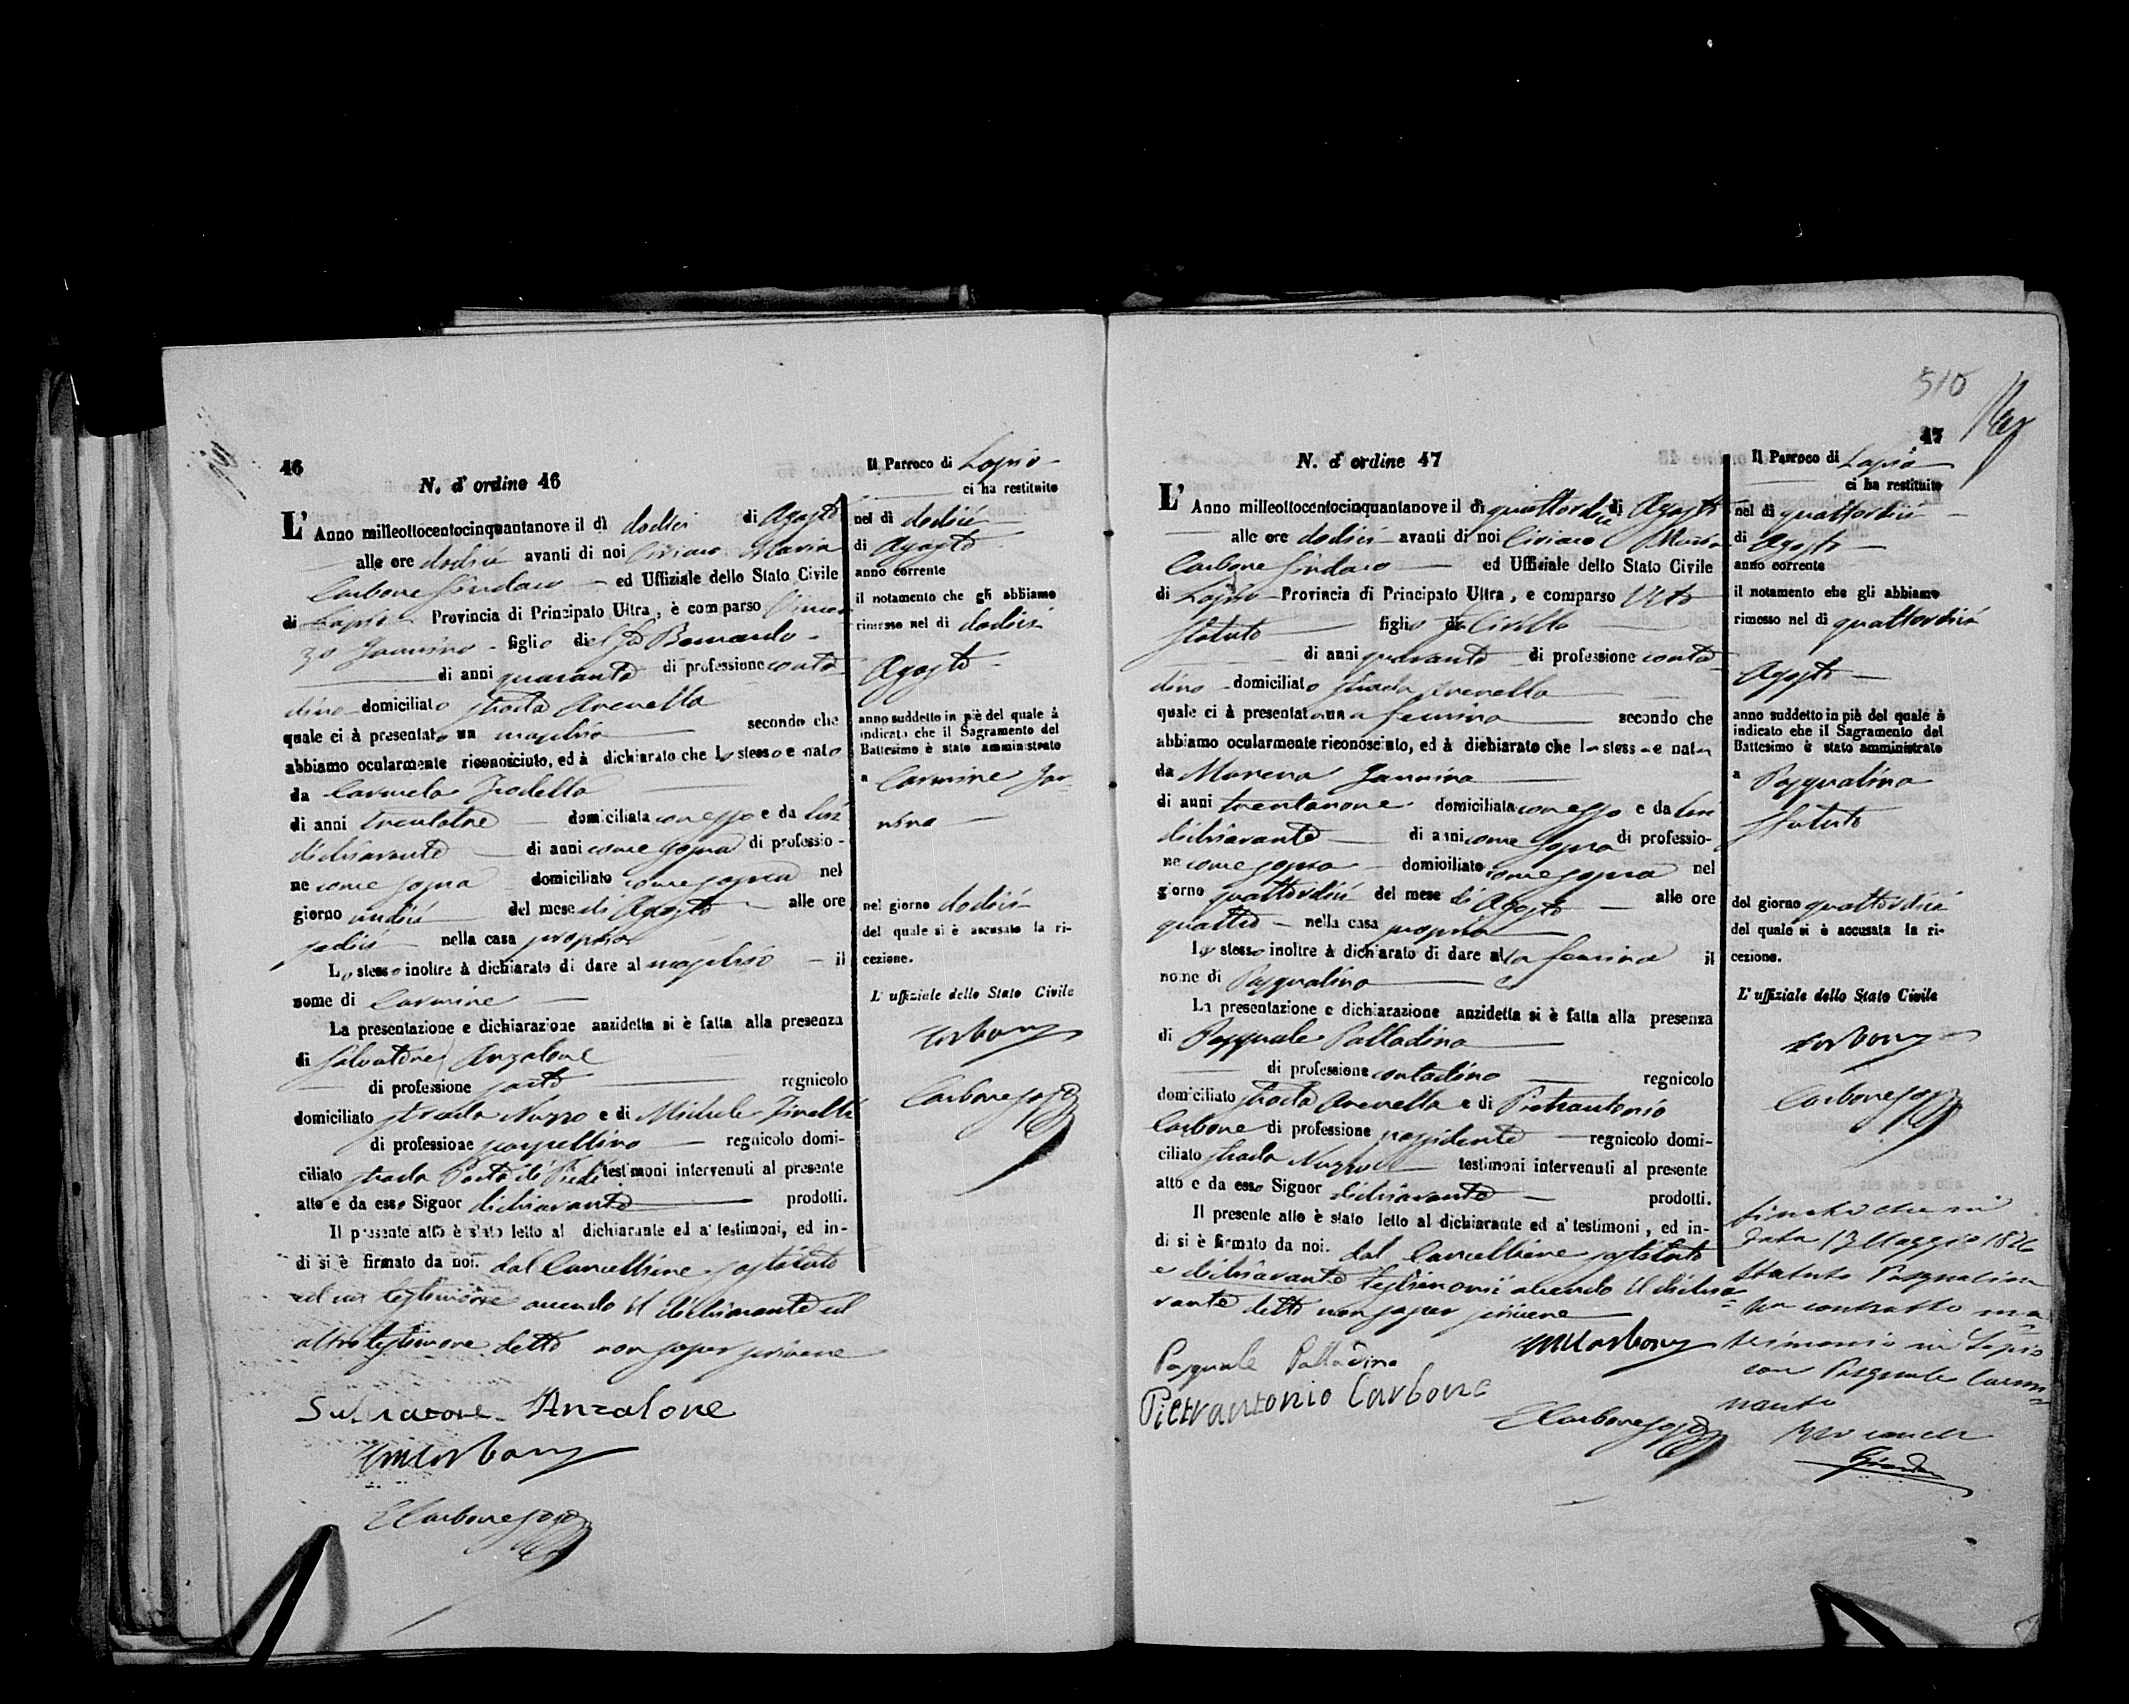 46
N. d' ordine 46
L' Anno milleottocentocinquantanove il dì dodici di Agosto
alle ore dodici avanti di noi Ciriaco Maria
Carbone Sindaco ed Uffiziale dello Stato Civile
di Lapio Provincia di Principato Ultra, è comparso
Jannino figlio del fu Bernardo
di anni quaranta di professione conta
dino domiciliato strada Arenella
quale ci à presentato un maschio secondo che
abbiamo ocularmente riconosciuto, ed à dichiarato che lo stesso e nato
da Carmela Trodella
di anni trentatre domiciliata con esso e da lui
dichiarante di anni come sopra di professio-
ne come sopra domiciliato come sopra nel
giorno undici del mese di Agosto alle ore
sedici nella casa propria
Lo stesso inoltre à dichiarato di dare al maschio il
nome di Carmine
La presentazione e dichiarazione anzidetta si è fatta alla presenza
di Salvatore Anzalone
di professione sarto regnicolo
domiciliato strada Nuzzo e di Michele
di professione scarpellino regnicolo domi-
ciliato strada Porta di Piedi testimoni intervenuti al presente
atto e da esso Signor dichiarante prodotti.
Il presente atto è stato letto al dichiarante ed a' testimoni, ed in-
di si è firmato da noi. dal Cancelliere sostituto
ed un testimone avendo il dichiarante ed
altro testimone detto non saper scrivere
Salvatore Anzalone
CMCarbone
CCarbone sosto
Il Parroco di Lapio
ci ha restituito
nel dì dodici
di Agosto
anno corrente
il notamento che gli abbiamo
rimesso nel dì dodici
Agosto
anno suddetto in piè del quale à
indicato che il Sagramento del
Battesimo è stato amministrato
a Carmine Jan-
nino
nel giorno dodici
del quale si è accusato la ri-
cezione.
L' uffiziale dello Stato Civile
Carbone
Carbone sosto
510
47
N. d' ordine 47
L' Anno milleottocentocinquantanove il dì quattordici di Agosto
alle ore dodici avanti di noi Ciriaco Maria
Carbone Sindaco ed Uffiziale dello Stato Civile
di Lapio Provincia di Principato Ultra, e comparso Vito
Statuto figlio di Civillo
di anni quaranta di professione conta
dino domiciliato strada Arenella
quale ci à presentato una femina secondo che
abbiamo ocularmente riconosciuto, ed à dichiarato che la stessa e nata
da Morena Jannino
di anni trentanove domiciliata con esso e da lui
dichiarante di anni come sopra di professio-
ne come sopra domiciliato come sopra nel
giorno quattordici del mese di Agosto alle ore
quattro nella casa propria
Lo stesso inoltre à dichiarato di dare alla femina il
nome di Pasqualina
La presentazione e dichiarazione anzidetta si è fatta alla presenza
di Pasquale Palladino
di professione contadino regnicolo
domiciliato strada Arenella e di Pietrantonio
Carbone di professione possidente regnicolo domi-
ciliato strada Nuzzo testimoni intervenuti al presente
atto e da esso Signor dichiarante prodotti.
Il presente atto è stato letto al dichiarante ed a' testimoni, ed in-
di si è firmato da noi. dal Cancelliere sostituto
e dichiarante testimonii avendo il dichia-
rante detto non saper scrivere
Pasquale Palladino
CMCarbone
Pietrantonio Carbone
CCarbone sosto
Il Parroco di Lapio
ci ha restituito
nel dì quattordici
di Agosto
anno corrente
il notamento che gli abbiamo
rimesso nel dì quattordici
Agosto
anno suddetto in piè del quale è
indicato che il Sagramento del
Battesimo è stato amministrato
a Pasqualina
Statuto
del giorno quattordici
del quale si è accusata la ri-
cezione.
L' uffiziale dello Stato Civile
Carbone
Carbone sosto
che in
data 13 Maggio 1876
Statuto Pasqualina
ha contratto ma-
trimonio in Lapio
con Pasquale Carmi-
nanto